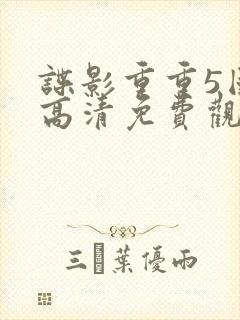 諜影重重5
高清免費觀
三 葉優雨